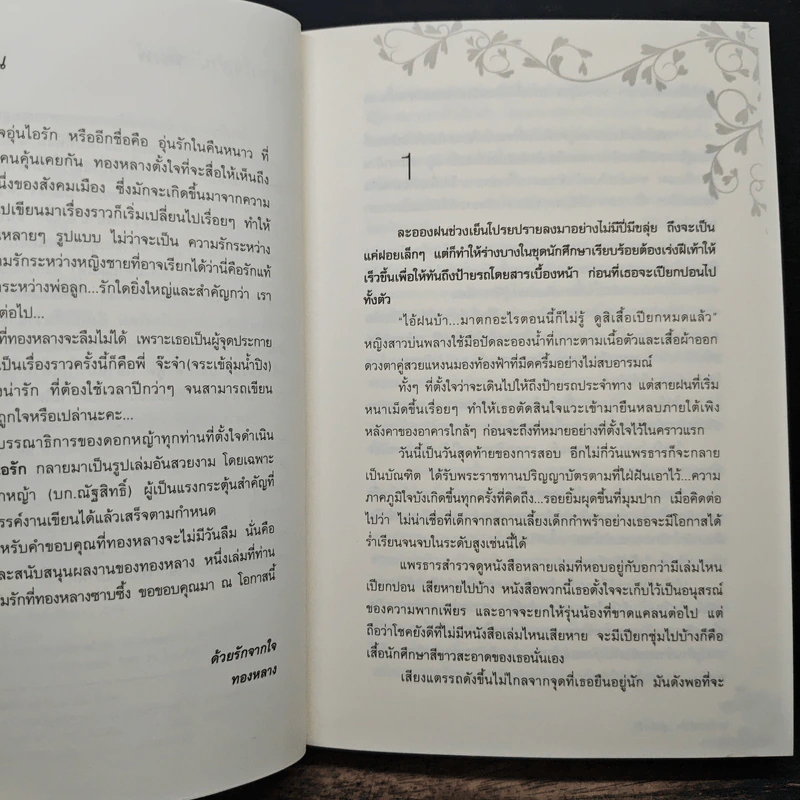 น
จอุ่นไอรัก หรืออีกชื่อคือ อุ่นรักในคืนหนาว ที่
คนคุ้นเคยกัน ทองหลางตั้งใจที่จะสื่อให้เห็นถึง
นึ่งของสังคมเมือง ซึ่งมักจะเกิดขึ้นมาจากความ
ปเขียนมาเรื่องราวก็เริ่มเปลี่ยนไปเรื่อยๆ ทำให้
นหลายๆ รูปแบบ ไม่ว่าจะเป็น ความรักระหว่าง
มรักระหว่างหญิงชายที่อาจเรียกได้ว่านี่คือรักแท้
กระหว่างพ่อลูก...รักใดยิ่งใหญ่และสำคัญกว่า เรา
ต่อไป...
ที่ทองหลางจะลืมไม่ได้ เพราะเธอเป็นผู้จุดประกาย
เป็นเรื่องราวครั้งนี้ก็คือพี่ จ๊ะจ๋า(จระเข้ลุ่มน้ำปิง)
งน่ารัก ที่ต้องใช้เวลาปีกว่าๆ จนสามารถเขียน
ถูกใจหรือเปล่านะคะ...
บรรณาธิการของดอกหญ้าทุกท่านที่ตั้งใจดำเนิน
ไอรัก กลายมาเป็นรูปเล่มอันสวยงาม โดยเฉพาะ
าหญ้า (บก.ณัฐสิทธิ์) ผู้เป็นแรงกระตุ้นสำคัญที่
รรค์งานเขียนได้แล้วเสร็จตามกำหนด
หรับคำขอบคุณที่ทองหลางจะไม่มีวันลืม นั่นคือ
ละสนับสนุนผลงานของทองหลาง หนึ่งเล่มที่ท่าน
มรักที่ทองหลางซาบซึ้ง ขอขอบคุณมา ณ โอกาสนี้
ด้วยรักจากใจ
ทองหลาง
1
ละอองฝนช่วงเย็นโปรยปรายลงมาอย่างไม่มีปี่มีขลุ่ย ถึงจะเป็น
แค่ฝอยเล็กๆ แต่ก็ทำให้ร่างบางในชุดนักศึกษาเรียบร้อยต้องเร่งฝีเท้าให้
เร็วขึ้นเพื่อให้ทันถึงป้ายรถโดยสารเบื้องหน้า ก่อนที่เธอจะเปียกปอนไป
ทั้งตัว
"ไอ้ฝนบ้า...มาตกอะไรตอนนี้ก็ไม่รู้ ดูสิเสื้อเปียกหมดแล้ว"
หญิงสาวบ่นพลางใช้มือปัดละอองน้ำที่เกาะตามเนื้อตัวและเสื้อผ้าออก
ดวงตาคู่สวยแหงนมองท้องฟ้าที่มืดครึ้มอย่างไม่สบอารมณ์
ทั้งๆ ที่ตั้งใจว่าจะเดินไปให้ถึงป้ายรถประจำทาง แต่สายฝนที่เริ่ม
หนาเม็ดขึ้นเรื่อยๆ ทำให้เธอตัดสินใจแวะเข้ามายืนหลบภายใต้เพิง
หลังคาของอาคารใกล้ๆ ก่อนจะถึงที่หมายอย่างที่ตั้งใจไว้ในคราวแรก
วันนี้เป็นวันสุดท้ายของการสอบ อีกไม่กี่วันแพรธารก็จะกลาย
เป็นบัณฑิต ได้รับพระราชทานปริญญาบัตรตามที่ใฝ่ฝันเอาไว้...ความ
ภาคภูมิใจบังเกิดขึ้นทุกครั้งที่คิดถึง...รอยยิ้มผุดขึ้นที่มุมปาก เมื่อคิดต่อ
ไปว่า ไม่น่าเชื่อที่เด็กจากสถานเลี้ยงเด็กกำพร้าอย่างเธอจะมีโอกาสได้
ร่ำเรียนจนจบในระดับสูงเช่นนี้ได้
แพรธารสำรวจดูหนังสือหลายเล่มที่หอบอยู่กับอกว่ามีเล่มไหน
เปียกปอน เสียหายไปบ้าง หนังสือพวกนี้เธอตั้งใจจะเก็บไว้เป็นอนุสรณ์
ของความพากเพียร และอาจจะยกให้รุ่นน้องที่ขาดแคลนต่อไป แต่
ถือว่าโชคยังดีที่ไม่มีหนังสือเล่มไหนเสียหาย จะมีเปียกชุ่มไปบ้างก็คือ
เสื้อนักศึกษาสีขาวสะอาดของเธอนั่นเอง
เสียงแตรรถดังขึ้นไม่ไกลจากจุดที่เธอยืนอยู่นัก มันดังพอที่จะ